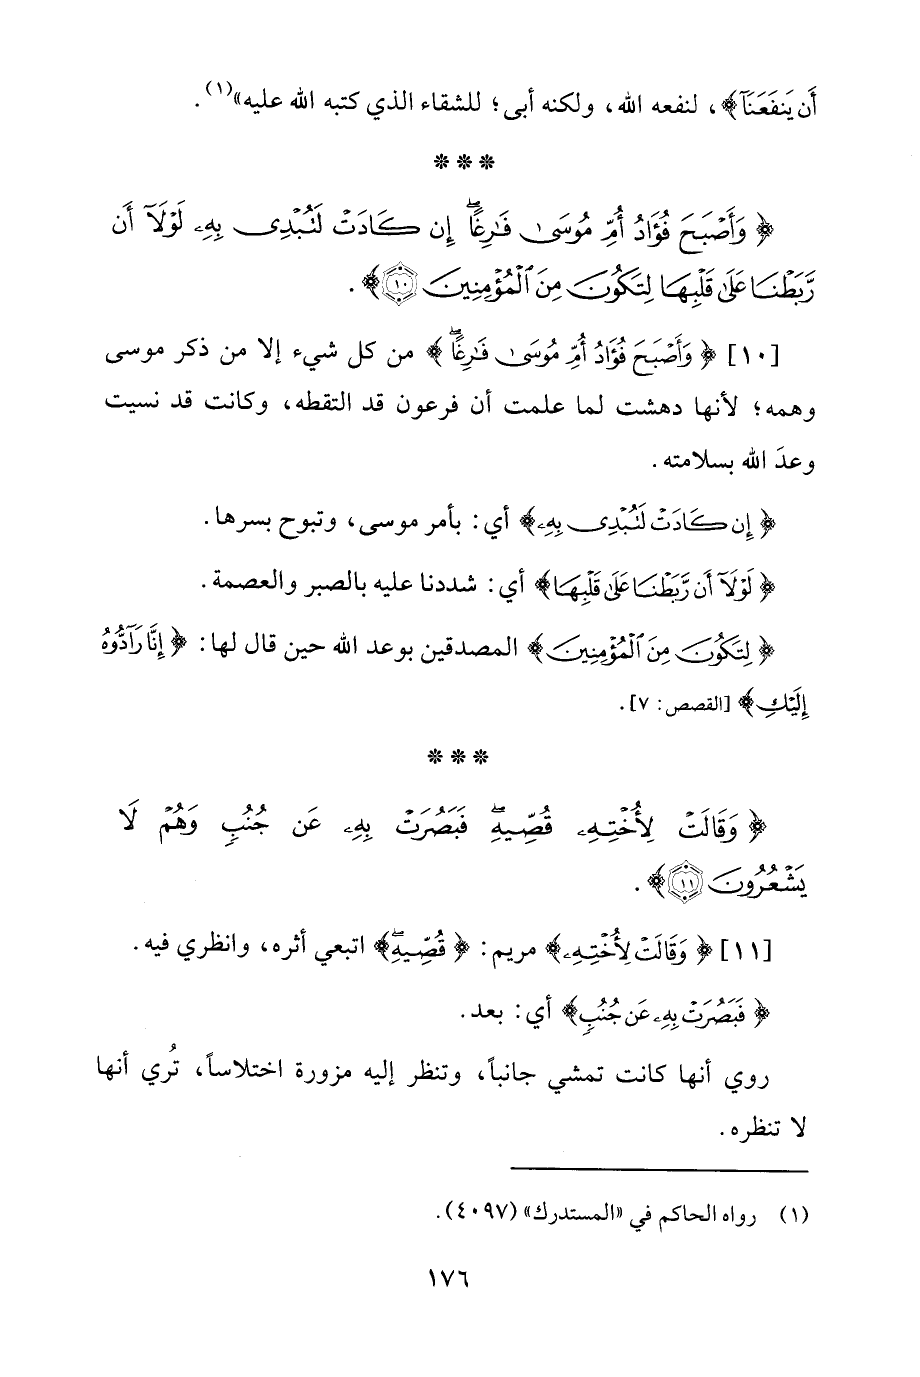 أَن يَنفَعَنَآ﴾، لنفعه الله، ولكنه أبى؛ للشقاء الذي كتبه الله عليه»(١).
* * *
﴿وَأَصْبَحَ فُؤَادُ أُمِّ مُوسَىٰ فَٰرِغًاۖ إِن كَادَتْ لَتُبْدِى بِهِۦ لَوْلَآ أَن
رَّبَطْنَا عَلَىٰ قَلْبِهَا لِتَكُونَ مِنَ ٱلْمُؤْمِنِينَ ١٠﴾.
[١٠] ﴿وَأَصْبَحَ فُؤَادُ أُمِّ مُوسَىٰ فَٰرِغًاۖ﴾ من كل شيء إلا من ذكر موسى
وهمه؛ لأنها دهشت لما علمت أن فرعون قد التقطه، وكانت قد نسيت
وعدَ الله بسلامته.
﴿إِن كَادَتْ لَتُبْدِى بِهِۦ﴾ أي: بأمر موسى، وتبوح بسرها.
﴿لَوْلَآ أَن رَّبَطْنَا عَلَىٰ قَلْبِهَا﴾ أي: شددنا عليه بالصبر والعصمة.
﴿لِتَكُونَ مِنَ ٱلْمُؤْمِنِينَ﴾ المصدقين بوعد الله حين قال لها: ﴿إِنَّا رَآدُّوهُ
إِلَيْكِ﴾ [القصص: ٧].
* * *
﴿وَقَالَتْ لِأُخْتِهِۦ قُصِّيهِۖ فَبَصُرَتْ بِهِۦ عَن جُنُبٍ وَهُمْ لَا
يَشْعُرُونَ ١١﴾.
[١١] ﴿وَقَالَتْ لِأُخْتِهِۦ﴾ مريم: ﴿قُصِّيهِۖ﴾ اتبعي أثره، وانظري فيه.
﴿فَبَصُرَتْ بِهِۦ عَن جُنُبٍ﴾ أي: بعد.
روي أنها كانت تمشي جانباً، وتنظر إليه مزورة اختلاساً، تُري أنها
لا تنظره.
(١) رواه الحاكم في «المستدرك» (٤٠٩٧).
١٧٦